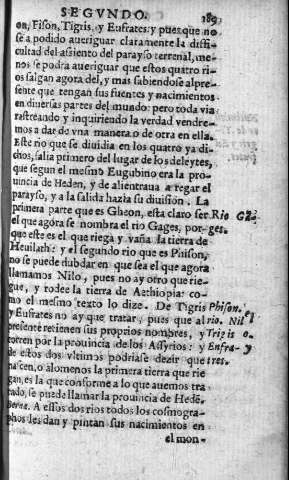 SEGVNDO. 189
on, Fison, Tigris, y Eufrates: y pues que no
se a podido aueriguar claramente la diffi-
cultad del assiento del parayso terrenal, me-
nos se podra aueriguar que estos quatro ri-
os salgan agora del, y mas sabiendose al pre-
sente que tengan sus fuentes y nacimientos
en diuersas partes del mundo: pero toda via
rastreando y inquiriendo la verdad vendre-
mos a dar de vna manera o de otra en ella.
Este rio que se diuidia en los quatro ya di-
chos, salia primero del lugar de los deleytes,
que segun el mesmo Eugubino era la pro-
uincia de Heden, y de alli entraua a regar el
parayso, y a la salida hazia su diuision. La
primera parte que es Gheon, esta claro ser
el que agora se nombra el rio Gages, por-
que este es el que riega y vaña la tierra de
Heuilath: y el segundo rio que es Phison,
no se puede dubdar en que sea el que agora
llamamos Nilo, pues no ay otro que rie-
gue, y rodee la tierra de Aethiopia: co-
mo el mesmo texto lo dize. De Tigris
y Eufrates no ay que tratar, pues que al
presente retienen sus proprios nombres, y
corren por la prouincia de los Assyrios: y
de estos dos vltimos podriase dezir que
nacen, o alomenos la primera tierra que rie
gan, es la que conforme a lo que auemos tra
tado, se puede llamar la prouincia de Hedē.
A estos dos rios todos los cosmogra-
phos les dan y pintan sus nacimientos en
el mon-
Rio
ges.
Phison.
rio. Nil
Trigis
Eufra-
tres.